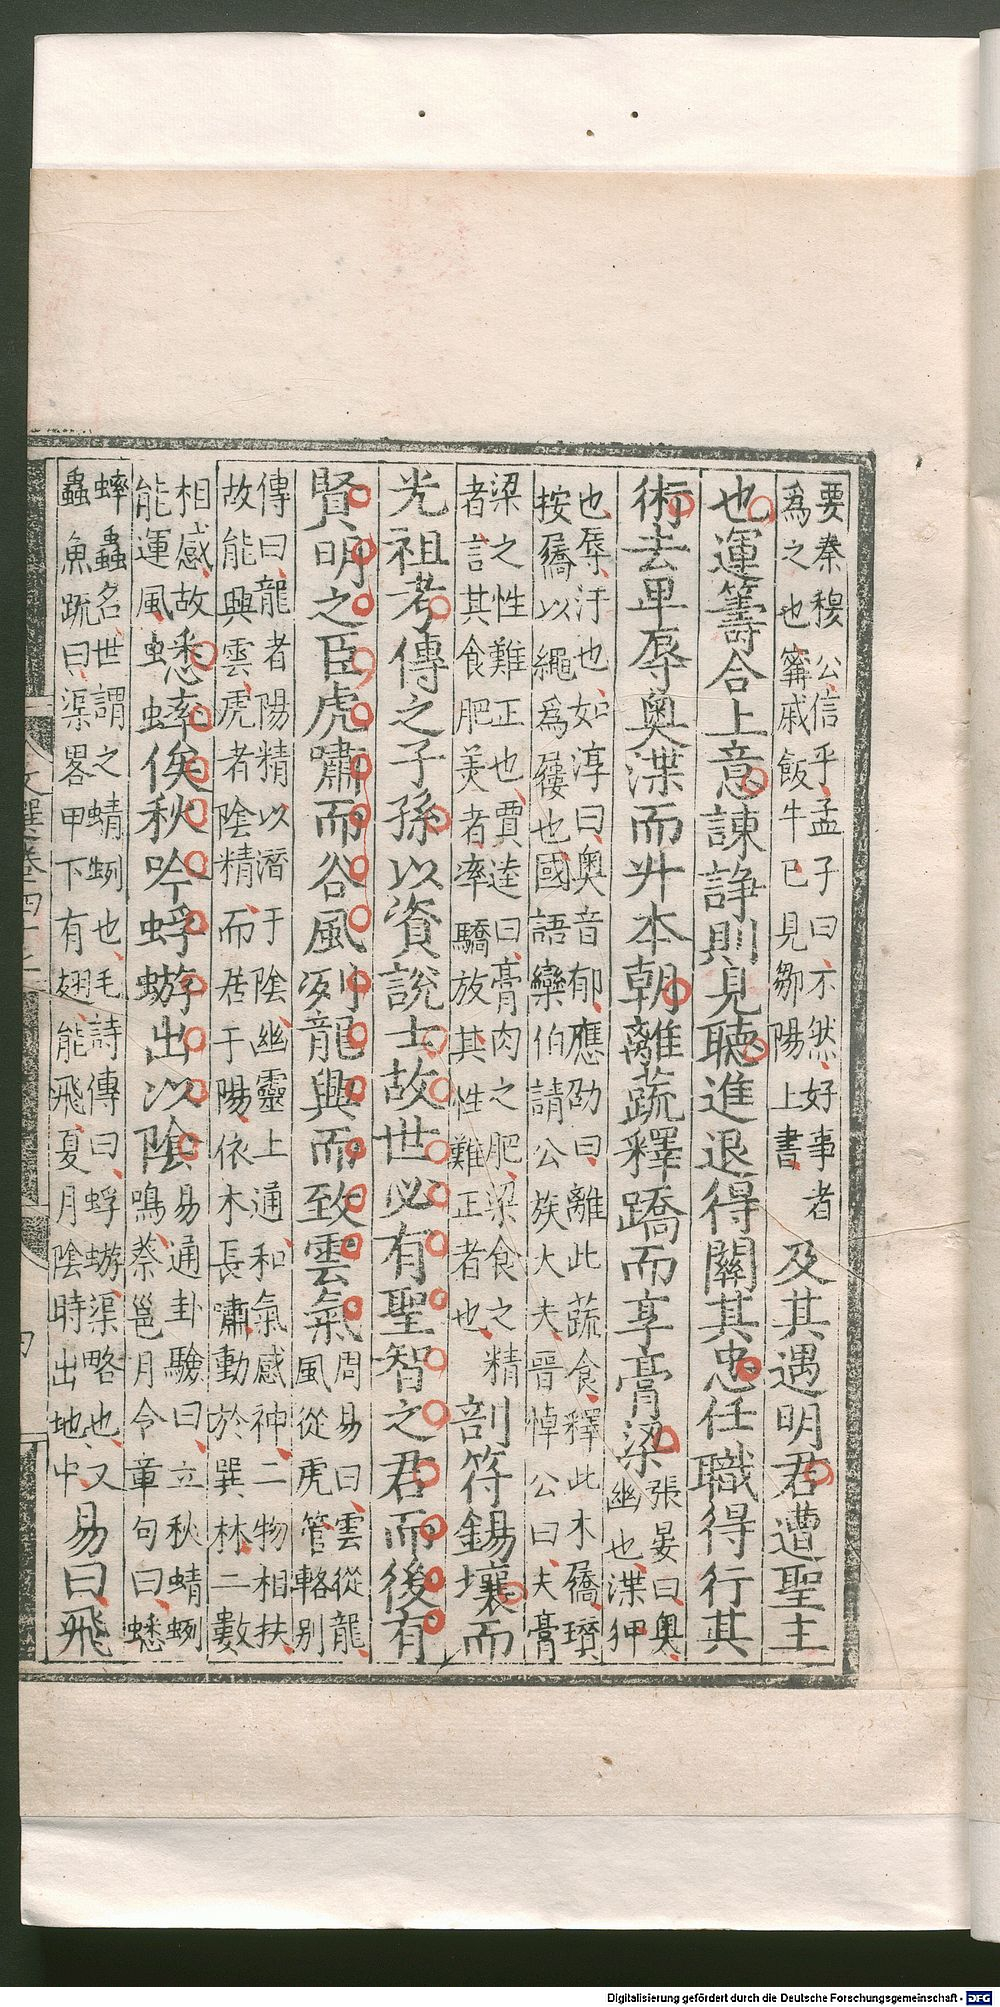 要秦穆公信乎孟子曰不然好事者
為之也甯戚飯牛已見鄒陽上書
及其遇明君遭聖主
也運籌合上意諫諍則見聽進退得關其忠任職得行其
術去卑辱奧渫而升本朝離蔬釋蹻而享膏梁
張晏曰奧
幽也渫狎
也辱汙也如淳曰奧音郁應劭曰離此蔬食釋此木屩瓚
按屩以繩為屨也國語欒伯請公族大夫晉悼公曰夫膏
梁之性難正也賈逵曰膏肉之肥梁食之精
者言其食肥美者率驕放其性難正者也
剖符錫壤而
光祖考傳之子孫以資說士故世必有聖智之君而後有
賢明之臣虎嘯而谷風冽龍興而致雲氣
周易曰雲從龍
風從虎管輅别
傳曰龍者陽精以潛于陰幽靈上通和氣感神二物相扶
故能興雲虎者陰精而居于陽依木長嘯動於巽林二數
相感故
能運風
蟋蟀俟秋吟蜉蝣出以陰
易通卦驗曰立秋蜻蛚
鳴蔡邕月令章句曰蟋
蟀蟲名世謂之蜻蛚也毛詩傳曰蜉蝣渠略也又
蟲魚疏曰渠畧甲下有翅能飛夏月陰時出地中
易曰飛
Digitalisierung gefördert durch die Deutsche Forschungsgemeinschaft - DFG